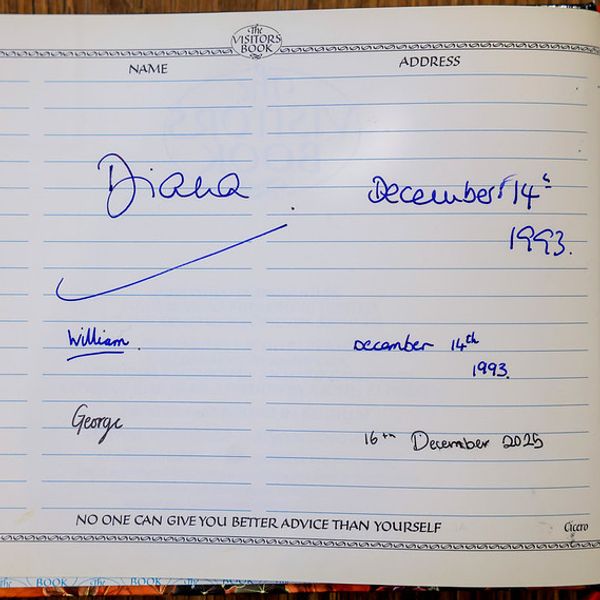 The
VISITORS
BOOK
NAME ADDRESS
Diana December 14th
1993.
William. December 14th
1993.
George 16th December 2025
NO ONE CAN GIVE YOU BETTER ADVICE THAN YOURSELF Cicero
The BOOK The BOOK The BOOK